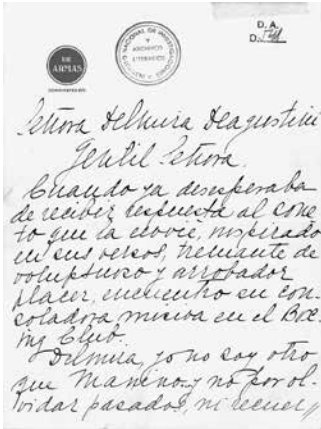 DE
ARMAS
NACIONAL DE INVESTIGACIONES
Y
ARCHIVOS
LITERARIOS
INSTITUTO
D. A.
D.
Señora Delmira Deagustini
Gentil Señora.
Cuando ya desesperaba
de recibir respuesta al sone-
to que la envié, inspirado
en sus versos, tremante de
voluptuoso y arrobador
placer, encuentro su con-
soladora misiva en el Box-
ing Club.
Delmira, yo no soy otro
que Manino, y no por ol-
vidar pasados, ni recuer